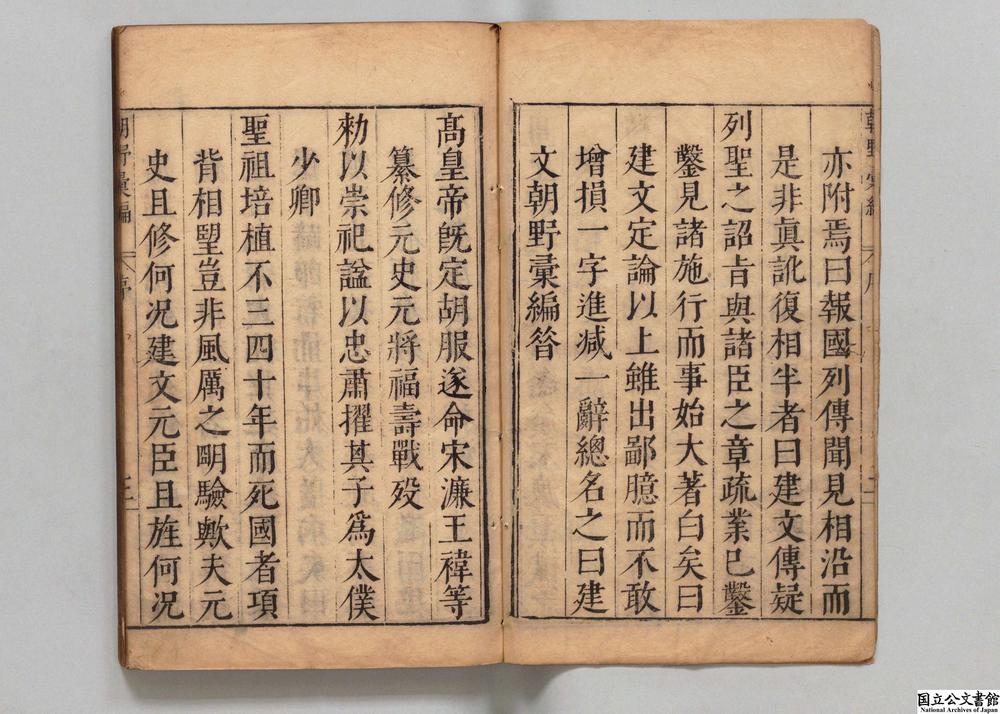 亦附焉曰報國列傳聞見相沿而
是非眞訛復相半者曰建文傳疑
列聖之詔旨與諸臣之章疏業已鑿
鑿見諸施行而事始大著白矣曰
建文定論以上雖出鄙臆而不敢
增損一字進减一辭總名之曰建
文朝野彙編昝
高皇帝旣定胡服遂命宋濂王褘等
纂修元史元將福壽戰歿
勑以崇祀諡以忠肅擢其子爲太僕
少卿
聖祖培植不三四十年而死國者項
背相望豈非風厲之明驗歟夫元
史且修何况建文元臣且旌何况
朝野彙編
序
国立公文書館
National Archives of Japan